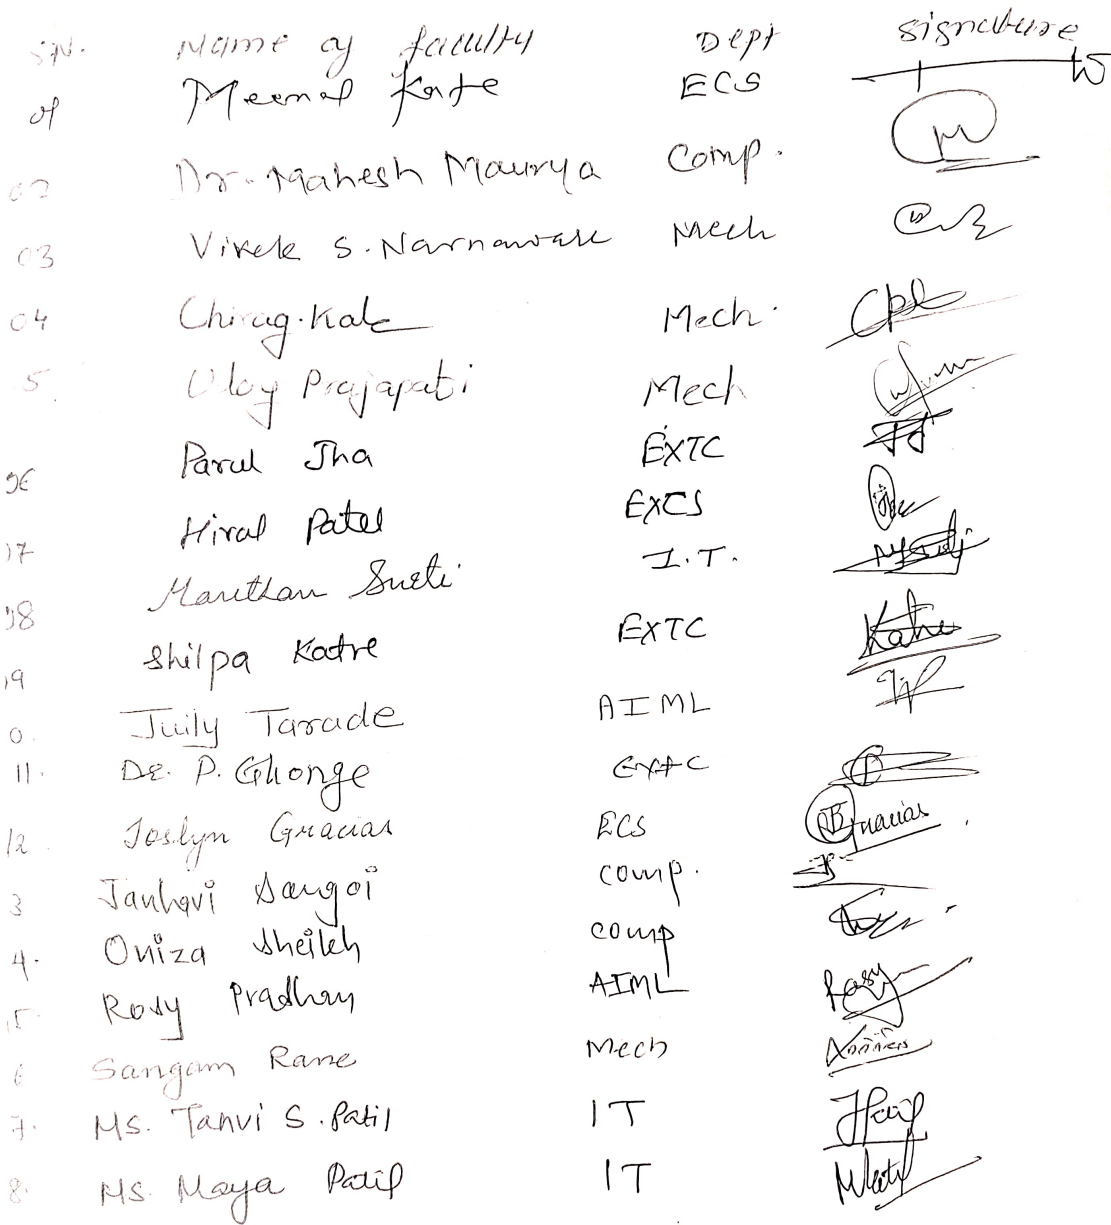 S.N. Name of faculty Dept signature
01 Meenal Kate ECS
02 Dr. Mahesh Maurya Comp.
03 Vivek S. Narnaware Mech
04 Chirag. Kale Mech.
5. Uday Prajapati Mech
06 Parul Jha EXTC
07 Hiral Patel EXCS
08 Manthan Surti I.T.
09 Shilpa Katre EXTC Katre
0. Juily Tarade AIML
11. DR. P. Ghonge EXTC
12. Joslyn Gracias ECS Gracias
3 Janhavi Sangoi comp.
4. Oniza Sheikh comp
15. Rosy Pradhan AIML Rosy
6 Sangam Rane Mech
7. MS. Tanvi S. Patil IT
8. MS. Maya Patil IT